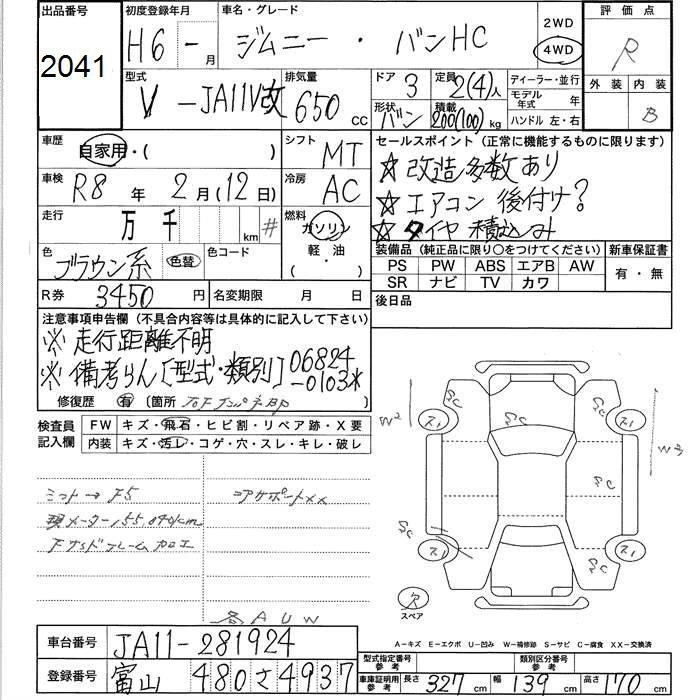 出品番号
2041
初度登録年月
H6 - 月
車名・グレード
ジムニー ・ バンHC
2WD
4WD
評価点
R
外装 内装
B
型式
V - JA11V改
排気量
650 CC
ドア 3
定員 2(4)人
形状 バン
積載 200(100) kg
ディーラー・並行
モデル年式 年
ハンドル 左・右
車歴
自家用・( )
シフト
MT
車検
R8 年 2 月 (12 日)
冷房
AC
走行
万 千 km #
燃料
ガソリン
軽油
( ・ )
色
ブラウン系 色替
色コード
R券 3450 円
名変期限 月 日
セールスポイント (正常に機能するものに限ります)
☆ 改造多数あり
☆ エアコン 後付け?
☆ タイヤ 積込み
装備品 (純正品に限り○をつけてください)
PS PW ABS エアB AW
SR ナビ TV カワ
新車保証書
有・無
後日品
注意事項申告欄 (不具合内容等は具体的に記入して下さい)
※ 走行距離不明
※ 備考らん〔型式・類別〕06824
-0103*
修復歴 有 (箇所 )
検査員
記入欄
FW キズ・飛石・ヒビ割・リペア跡・X要
内装 キズ・汚レ・コゲ・穴・スレ・キレ・破レ
ミット→F5
現メーター155,040km
Fサイドフレーム加工
コアサポートxx
各AUW
W2
W3
SC
SC
SC
SC
SC
スリ
スリ
スリ
スリ
欠
スペア
A-キズ E-エクボ U-凹み W-補修跡 S-サビ C-腐食 XX-交換済
車台番号 JA11-281924
登録番号 富山 480 さ 4937
型式指定番号 参考
類別区分番号 参考
車庫証明用 参考 長さ 327 cm 幅 139 cm 高さ 170 cm